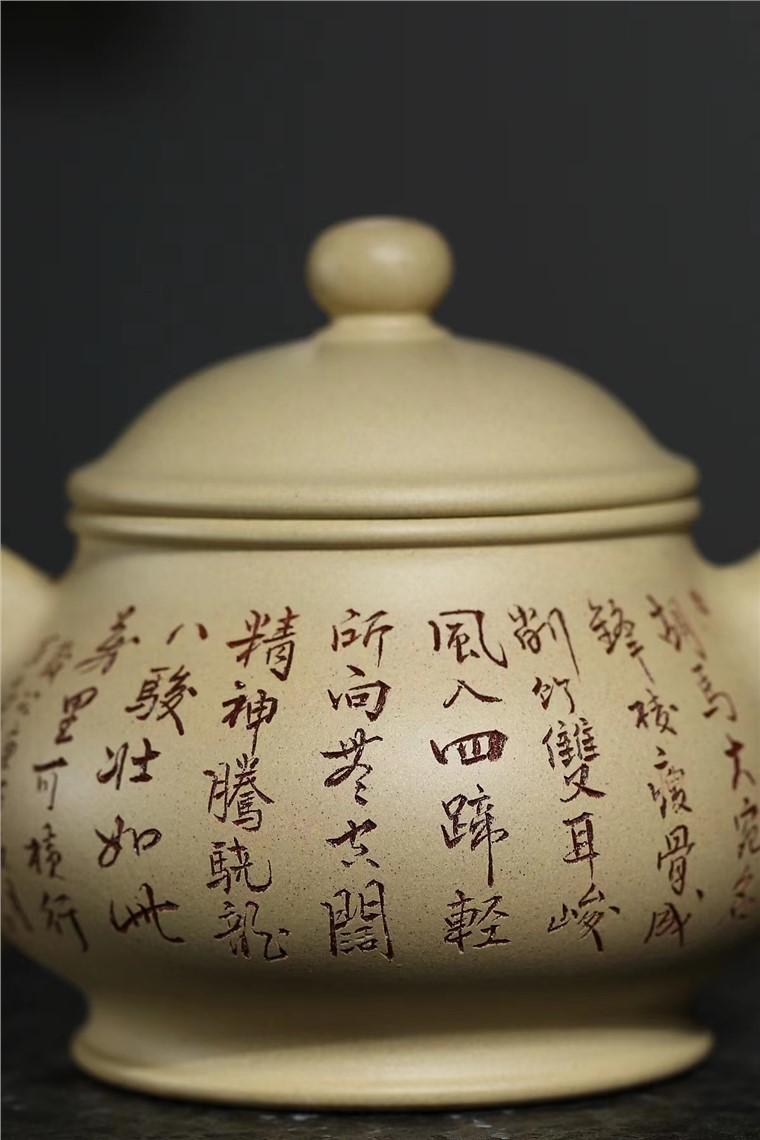 胡馬大宛名
鋒棱瘦骨成
削竹雙耳峻
風入四蹄輕
所向無空闊
精神騰驍龍
八駿壯如此
萬里可橫行